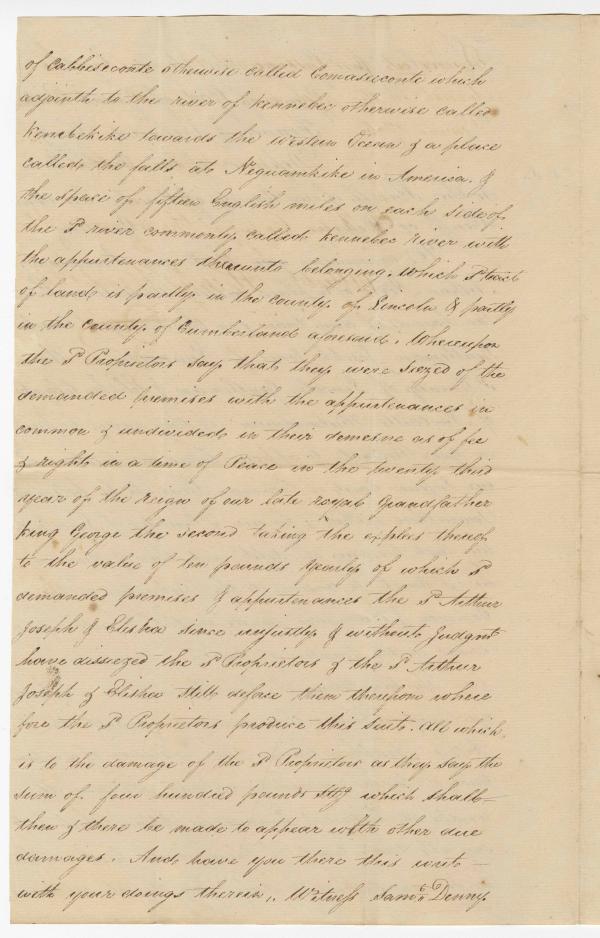 of Cabbiseconte otherwise called Comaseconte which
adjointh to the river of Kennebec otherwise called
Kenebekike towards the Western Ocean & a place
called the falls at Neguamkike in America. &
the space of fifteen English miles on each side of
the Sd river commonly called Kennebec river with
the appurtenances thereunto belonging. which Sd tract
of land is partly in the county of Lincoln & partly
in the county of Cumberland aforesaid. Whereupon
the Sd Proprietors say that they were Siezed of the
demanded premises with the appurtenances in
common & undivided in their demesne as of fee
& right in a time of Peace in the twenty third
year of the reign of our late royal Grandfather
King George the second taking the explees thereof
to the value of ten pounds yearly of which Sd
demanded premises & appurtenances the Sd Arthur
Joseph & Elisha since unjustly & without Judgmt
have disseized the Sd Proprietors & the Sd Arthur
Joseph & Elisha still deforce them thereupon where
fore the Sd Proprietors produce this Suit. All which
is to the damage of the Sd Proprietors as they say the
sum of four hundred pounds Stlg which shall
then & there be made to appear with other due
damages. And have you there this writ
with your doings therein. Witness Saml Denny